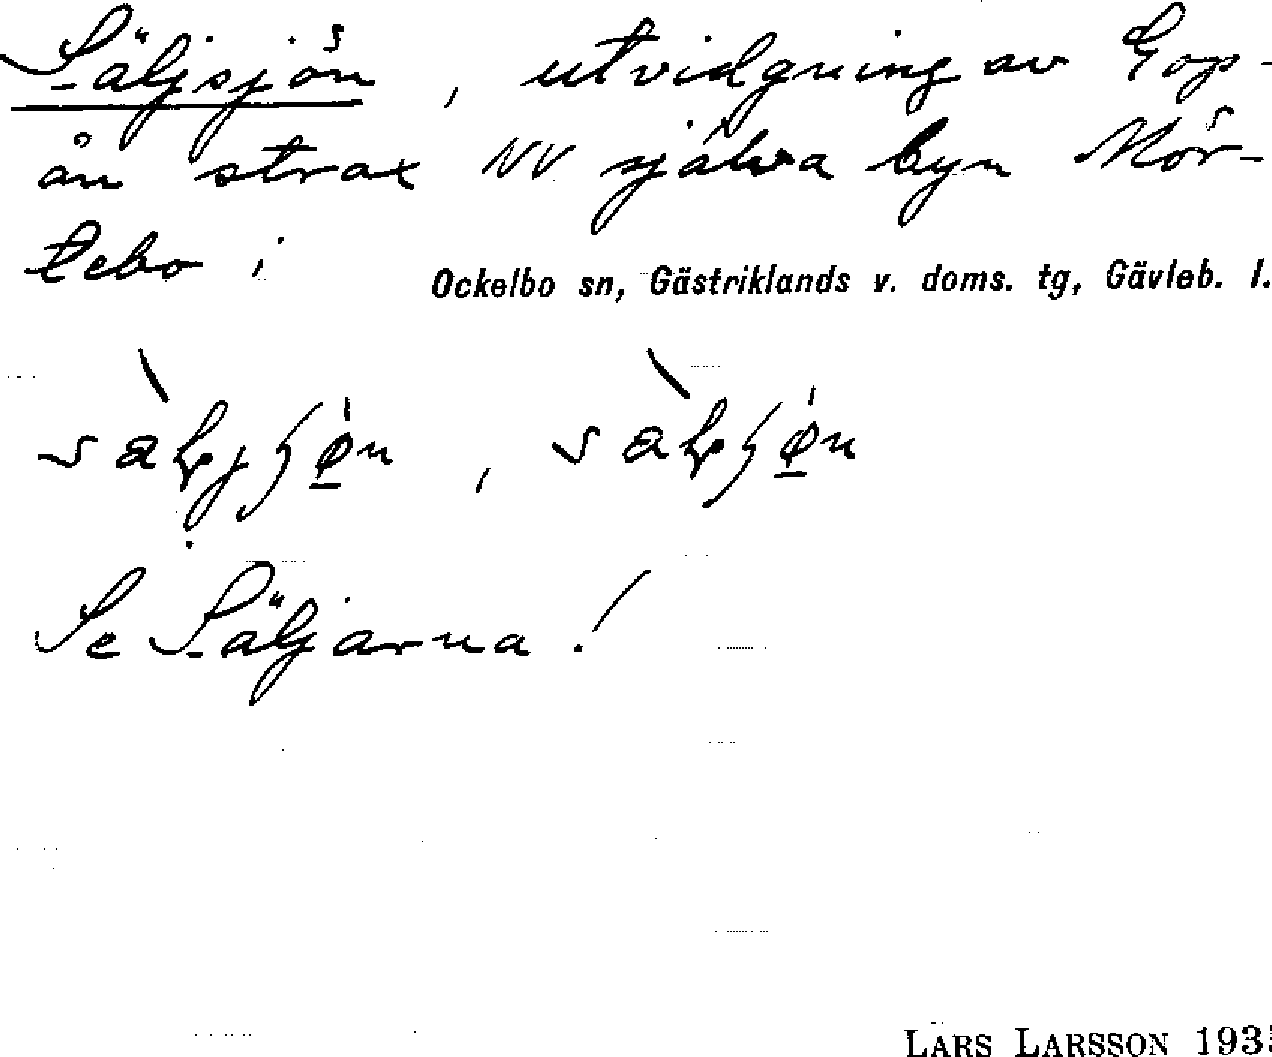 Säljsjön, utvidgning av Gop-
ån strax NV själva byn Mör-
tebo i
Ockelbo sn, Gästriklands v. doms. tg, Gävleb. l.
Se Säljarna!
LARS LARSSON 193